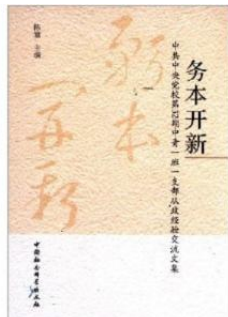 陈瑞 主编
务本开新
中共中央党校第37期中青一班一支部从政经验交流文集
务本
开新
中国社会科学出版社